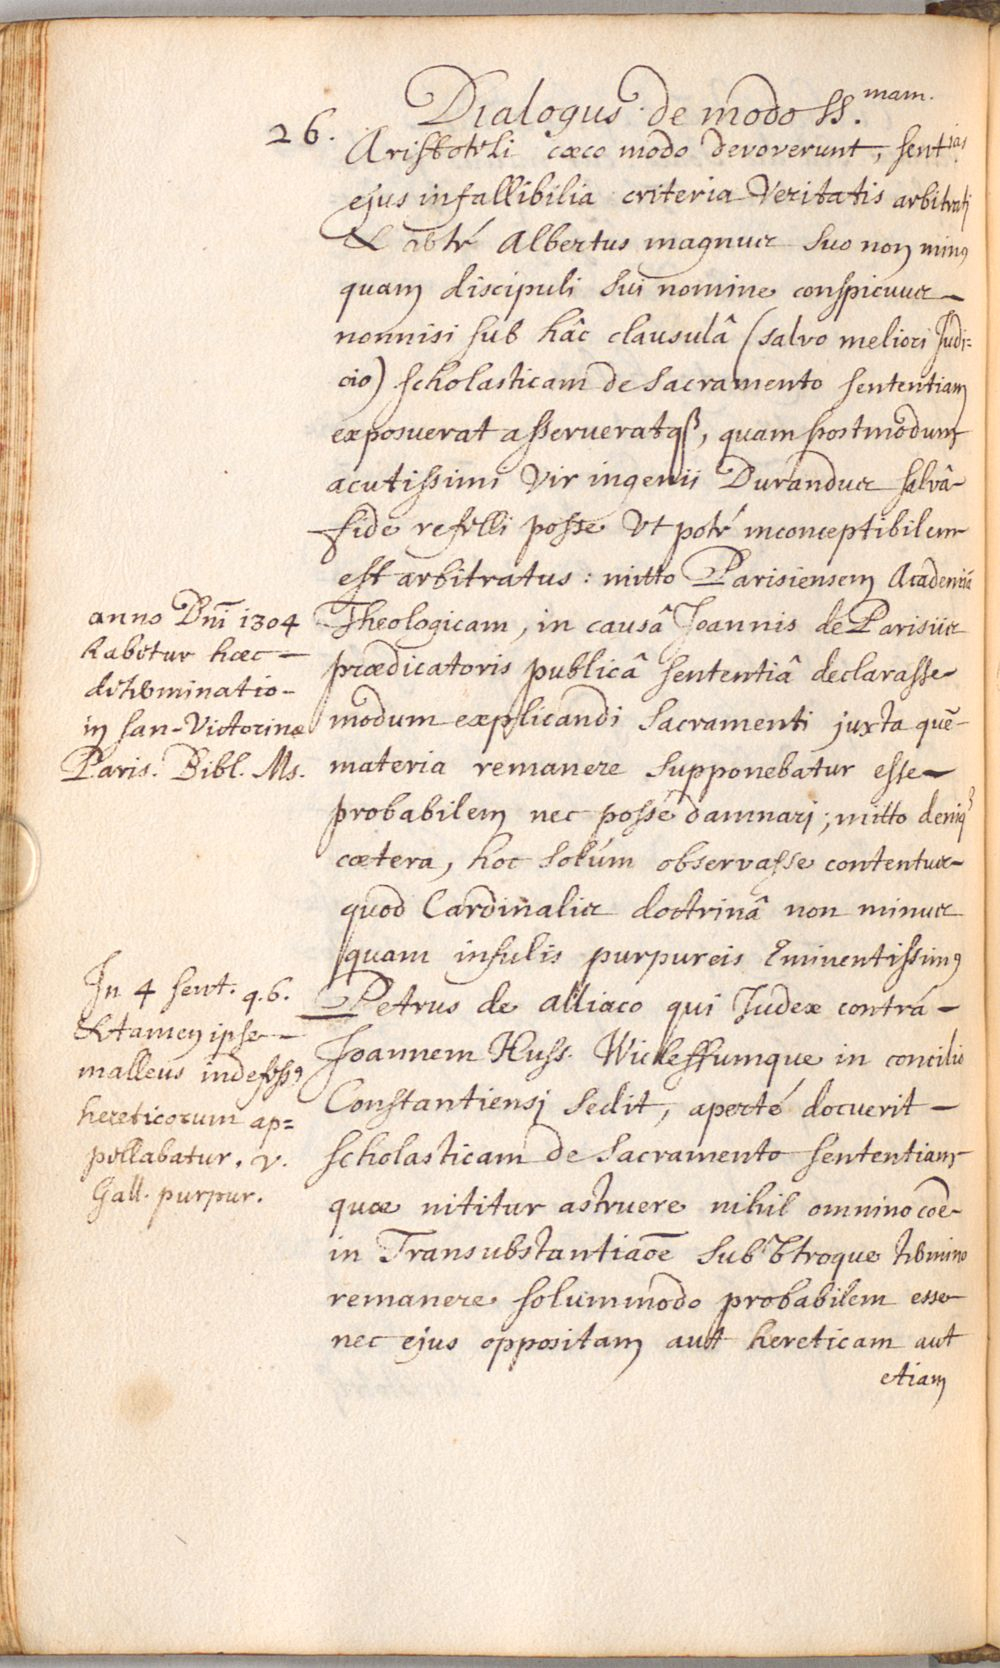 26.
Dialogus de modo ss.mam.
Aristoteli cæco modo devoverunt, sentias
ejus infallibilia criteria Veritatis arbitrati
& Albertus magnus suo non minus
quam discipuli sui nomine conspicuus
nonnisi sub hâc clausulâ (salvo meliori Judi=
cio) scholasticam de Sacramento sententiam
exposuerat asserueratq3, quam postmodum
acutissimi Vir ingenii Durandus salvâ
fide refelli posse Ut poté inconceptibilem
est arbitratus: mitto Parisiensem Academiã
Theologicam, in causâ Joannis de Parisiis
prædicatoris publicâ sententiâ declarasse
modum explicandi Sacramenti juxta quē
materia remanere supponebatur esse
probabilem nec possé damnari; mitto deniq3
cætera, hoc solúm observasse contentus
quod Cardinalis doctrinâ non minus
quam infulis purpureis Eminentissimus
Petrus de Alliaco qui Judex contrá
Joannem Huss. Wicleffumque in concilio
Constantiensi sedit, aperté docuerit
scholasticam de Sacramento sententiam
quæ nititur astruere nihil omnino coē
in Transubstantiaōe sub Utroque termino
remanere solummodo probabilem esse
nec ejus oppositam aut hereticam aut
etiam
anno Dñi 1304
habetur hæc
determinatio
in san-Victorinæ
Paris. Bibl. Ms.
In 4 sent. q.6.
& tamen ipse
malleus indefessus
hereticorum ap=
pellabatur. v.
Gall. purpur.